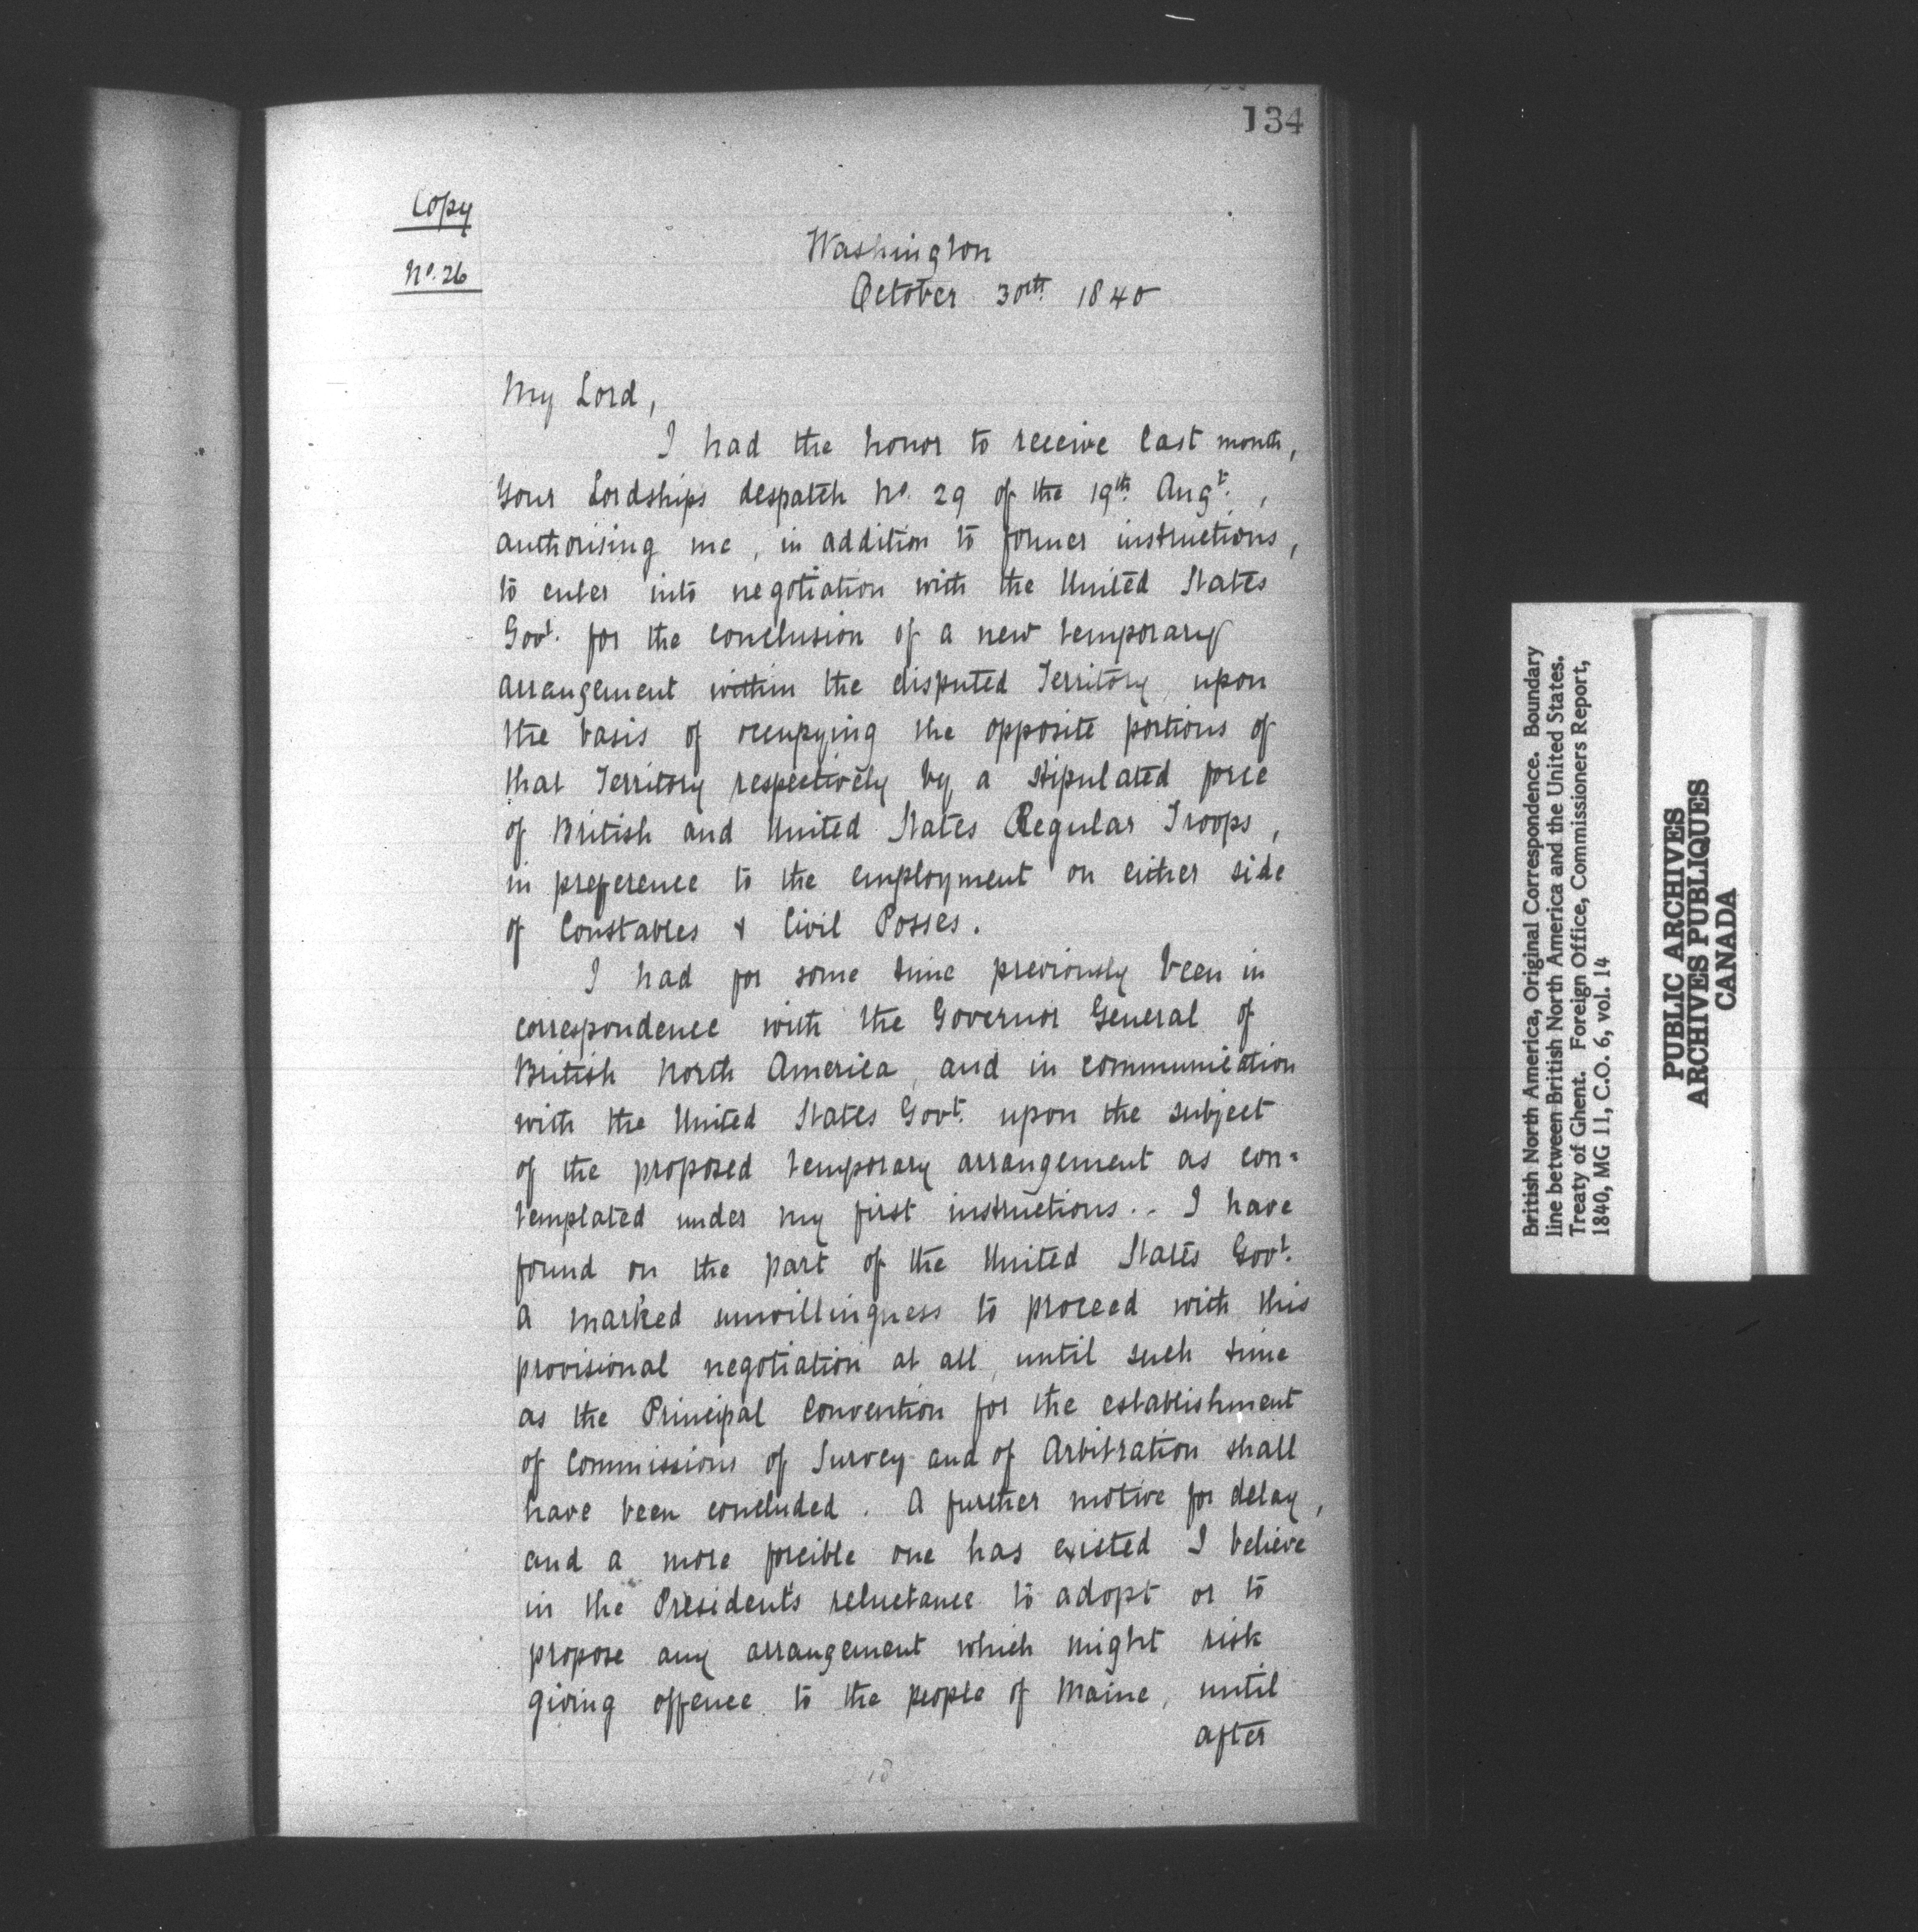 134
Copy
No. 26
Washington
October 30th 1840
My Lord,
I had the honor to receive last month,
Your Lordships despatch No. 29 of the 19th Augt.,
authorising me, in addition to former instructions,
to enter into negotiation with the United States
Govt. for the conclusion of a new temporary
arrangement within the disputed Territory, upon
the basis of occupying the opposite portions of
that Territory respectively by a stipulated force
of British and United States Regular Troops,
in preference to the employment on either side
of Constables & Civil Posses.
I had for some time previously been in
correspondence with the Governor General of
British North America, and in communication
with the United States Govt. upon the subject
of the proposed temporary arrangement as con=
templated under my first instructions.. I have
found on the part of the United States Govt.
a marked unwillingness to proceed with this
provisional negotiation at all, until such time
as the Principal Convention for the establishment
of Commissions of Survey and of Arbitration shall
have been concluded. A further motive for delay,
and a more forcible one has existed I believe
in the President's reluctance to adopt or to
propose any arrangement which might risk
giving offence to the people of Maine, until
after
British North America, Original Correspondence. Boundary
line between British North America and the United States.
Treaty of Ghent. Foreign Office, Commissioners Report,
1840, MG 11, C.O. 6, vol. 14
PUBLIC ARCHIVES
ARCHIVES PUBLIQUES
CANADA